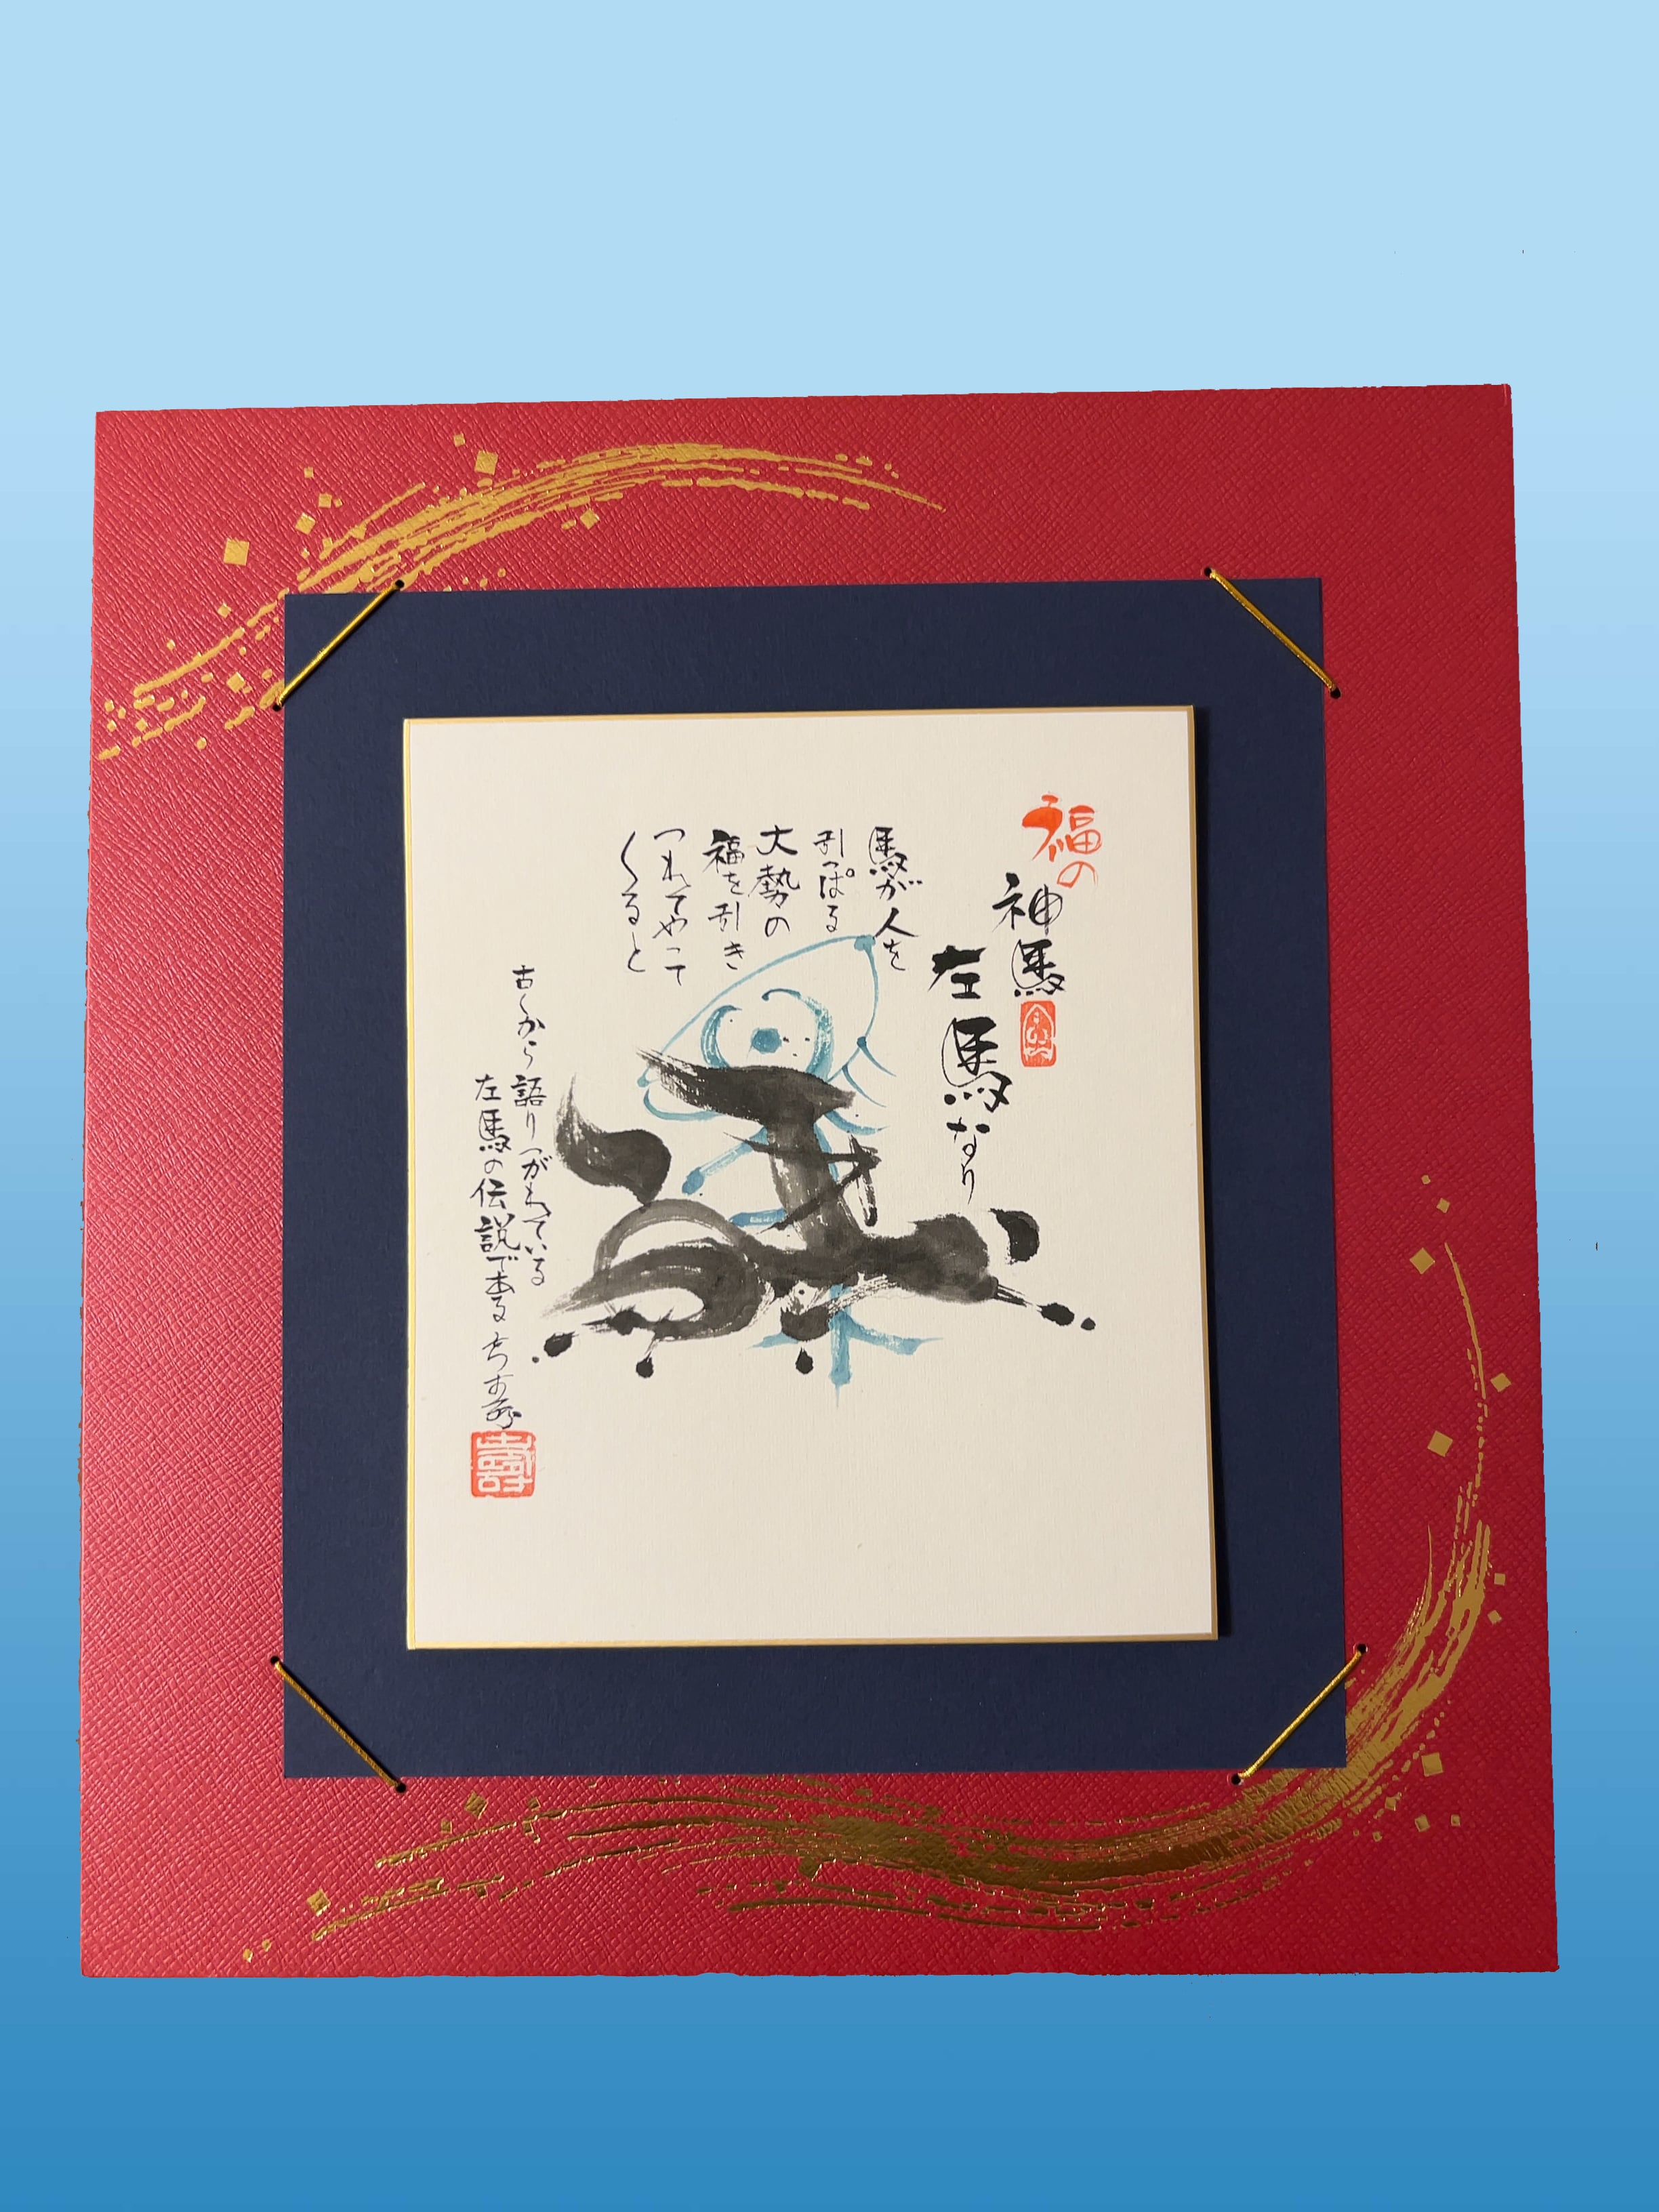 福の
神馬
左馬なり
馬が人を
引っぱる
大勢の
福を引き
つれてやって
くると
古くから語りつがれている
左馬の伝説である
壽